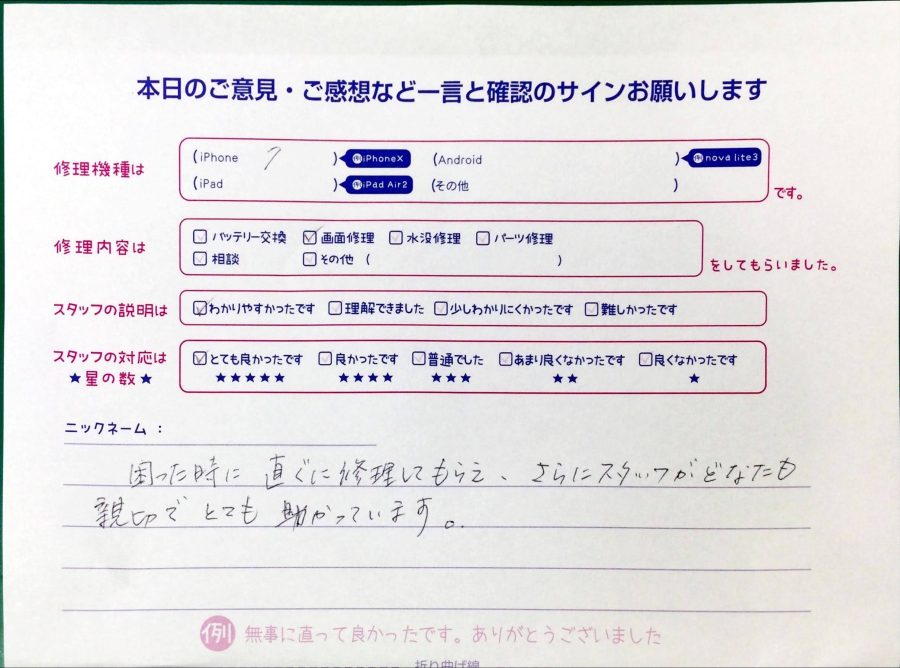 本日のご意見・ご感想など一言と確認のサインお願いします
修理機種は
(iPhone 7 ) 例iPhoneX (Android ) 例nova lite3
(iPad ) 例iPad Air2 (その他 )
です。
修理内容は
バッテリー交換 画面修理 水没修理 パーツ修理
相談 その他 ( )
をしてもらいました。
スタッフの説明は
わかりやすかったです 理解できました 少しわかりにくかったです 難しかったです
スタッフの対応は
★星の数★
とても良かったです 良かったです 普通でした あまり良くなかったです 良くなかったです
★★★★★ ★★★★ ★★★ ★★ ★
ニックネーム：
困った時に直ぐに修理してもらえ、さらにスタッフがどなたも
親切でとても助かっています。
例 無事に直って良かったです。ありがとうございました
折り曲げ線